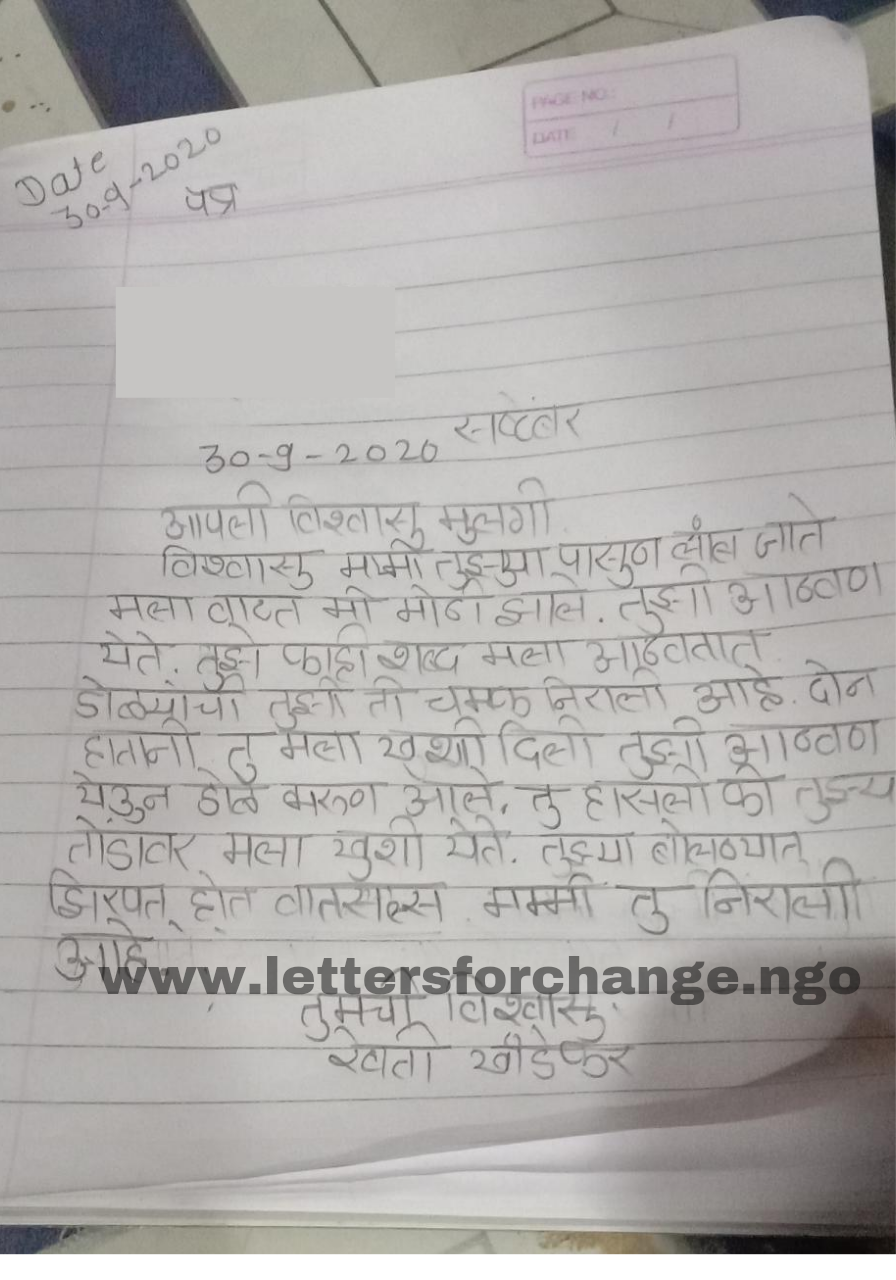 PAGE NO.:
DATE / /
Date
30-9-2020
पत्र
सप्टेंबर
30-9-2020
आपली विश्वासु मुलगी.
विश्वासु मम्मी तुझ्या पासुण लांब जाते
मला वाटत मी मोठी झाले. तुझी आठवण
येते. तुझे काही शब्द मला आठवतात.
डोळ्याची तुझी ती चमक निराली आहे. दोन
हातानी तु मला खुशी दिली तुझी आठवण
येऊन डोळे भरुण आले. तु हासली की तुझ्य
तोंडावर मला खुशी येते. तुझ्या बोलण्यात
झिरपत होत वातसल्स मम्मी तु निराली
आहे.
www.lettersforchange.ngo
तुमची विश्वासु.
रेवती खेडेकर